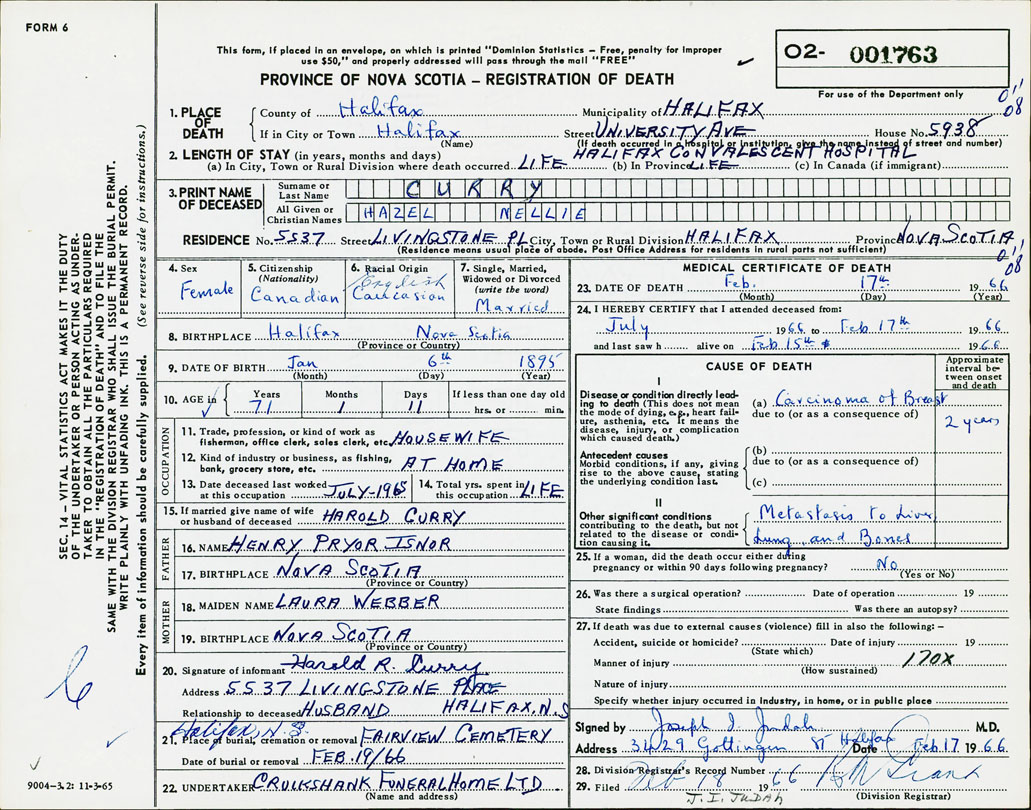 FORM 6
This form, if placed in an envelope, on which is printed "Dominion Statistics – Free, penalty for improper
use $50," and properly addressed will pass through the mail "FREE"
PROVINCE OF NOVA SCOTIA – REGISTRATION OF DEATH
02- 001763
For use of the Department only
1. PLACE OF DEATH
County of Halifax Municipality of HALIFAX
If in City or Town Halifax Street UNIVERSITY AVE House No. 5938
(Name) (If death occurred in a hospital or institution, give the name instead of street and number)
2. LENGTH OF STAY (in years, months and days) HALIFAX CONVALESCENT HOSPITAL
(a) In City, Town or Rural Division where death occurred LIFE (b) In Province LIFE (c) In Canada (if immigrant)
3. PRINT NAME OF DECEASED
Surname or Last Name CURRY
All Given or Christian Names HAZEL NELLIE
RESIDENCE No. 5537 Street LIVINGSTONE PL City, Town or Rural Division HALIFAX Province NOVA SCOTIA
(Residence means usual place of abode. Post Office Address for residents in rural parts not sufficient)
4. Sex Female
5. Citizenship (Nationality) Canadian
6. Racial Origin English Caucasian
7. Single, Married, Widowed or Divorced (write the word) Married
8. BIRTHPLACE Halifax Nova Scotia
(Province or Country)
9. DATE OF BIRTH Jan 6th 1895
(Month) (Day) (Year)
10. AGE in Years 71 Months 1 Days 11 If less than one day old hrs. or min.
OCCUPATION
11. Trade, profession, or kind of work as fisherman, office clerk, sales clerk, etc. HOUSEWIFE
12. Kind of industry or business, as fishing, bank, grocery store, etc. AT HOME
13. Date deceased last worked at this occupation JULY-1965 14. Total yrs. spent in this occupation LIFE
15. If married give name of wife or husband of deceased HAROLD CURRY
FATHER
16. NAME HENRY PRYOR ISNOR
17. BIRTHPLACE NOVA SCOTIA
(Province or Country)
MOTHER
18. MAIDEN NAME LAURA WEBBER
19. BIRTHPLACE NOVA SCOTIA
(Province or Country)
20. Signature of informant Harold R. Curry
Address 5537 LIVINGSTONE PLACE
Relationship to deceased HUSBAND HALIFAX, N.S
Halifax, N.S.
21. Place of burial, cremation or removal FAIRVIEW CEMETERY
Date of burial or removal FEB. 19/66
22. UNDERTAKER CRUIKSHANK FUNERAL HOME LTD
(Name and address)
MEDICAL CERTIFICATE OF DEATH
23. DATE OF DEATH Feb. 17th 1966
(Month) (Day) (Year)
24. I HEREBY CERTIFY that I attended deceased from:
July 1966 to Feb 17th 1966
and last saw h alive on Feb 15th 1966
CAUSE OF DEATH
Approximate interval between onset and death
I
Disease or condition directly leading to death (This does not mean the mode of dying, e.g., heart failure, asthenia, etc. It means the disease, injury, or complication which caused death.)
(a) Carcinoma of Breast
due to (or as a consequence of)
2 years
Antecedent causes
Morbid conditions, if any, giving rise to the above cause, stating the underlying condition last.
(b)
due to (or as a consequence of)
(c)
II
Other significant conditions contributing to the death, but not related to the disease or condition causing it.
Metastasis to Liver
Lung and Bones
25. If a woman, did the death occur either during pregnancy or within 90 days following pregnancy? No
(Yes or No)
26. Was there a surgical operation? Date of operation 19
State findings Was there an autopsy?
27. If death was due to external causes (violence) fill in also the following: –
Accident, suicide or homicide? Date of injury 19
(State which)
Manner of injury 170X
(How sustained)
Nature of injury
Specify whether injury occurred in industry, in home, or in public place
Signed by Joseph I. Judah M.D.
Address 3429 Gottingen St Halifax Date Feb. 17 1966
28. Division Registrar's Record Number
29. Filed Feb 18 1966
(Division Registrar)
J. I. JUDAH
SEC. 14 – VITAL STATISTICS ACT MAKES IT THE DUTY
OF THE UNDERTAKER OR PERSON ACTING AS UNDER-
TAKER TO OBTAIN ALL THE PARTICULARS REQUIRED
IN THE "REGISTRATION OF DEATH" AND TO FILE THE
SAME WITH THE DIVISION REGISTRAR WHO SHALL ISSUE THE BURIAL PERMIT.
WRITE PLAINLY WITH UNFADING INK. THIS IS A PERMANENT RECORD.
Every item of information should be carefully supplied. (See reverse side for instructions.)
9004-3.2: 11-3-65